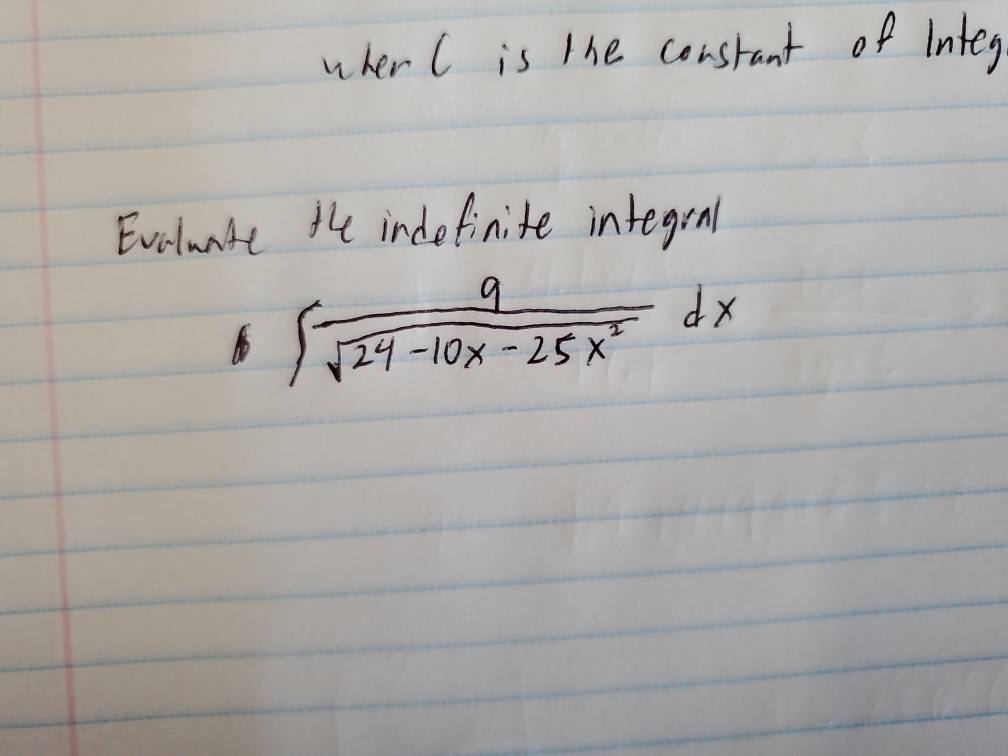 wher C is the constant of Integ
Evaluate the indefinite integral
∫ 9 / √24 - 10x - 25x² dx